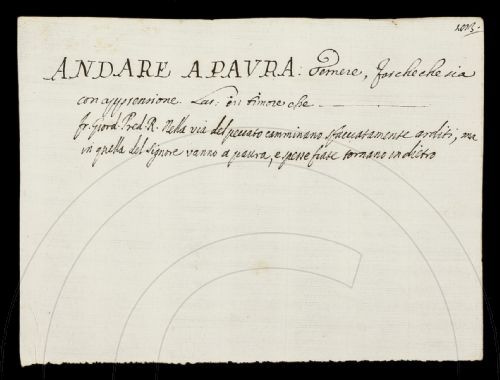 ANDARE A PAVRA: Temere, far che che sia
con apprensione. Lat: in timore che
fr. Giord. Pred. R. Nella via del peccato camminano sfacciatamente arditi, ma
in quella del Signore vanno a paura, e spesse fiate tornano indietro